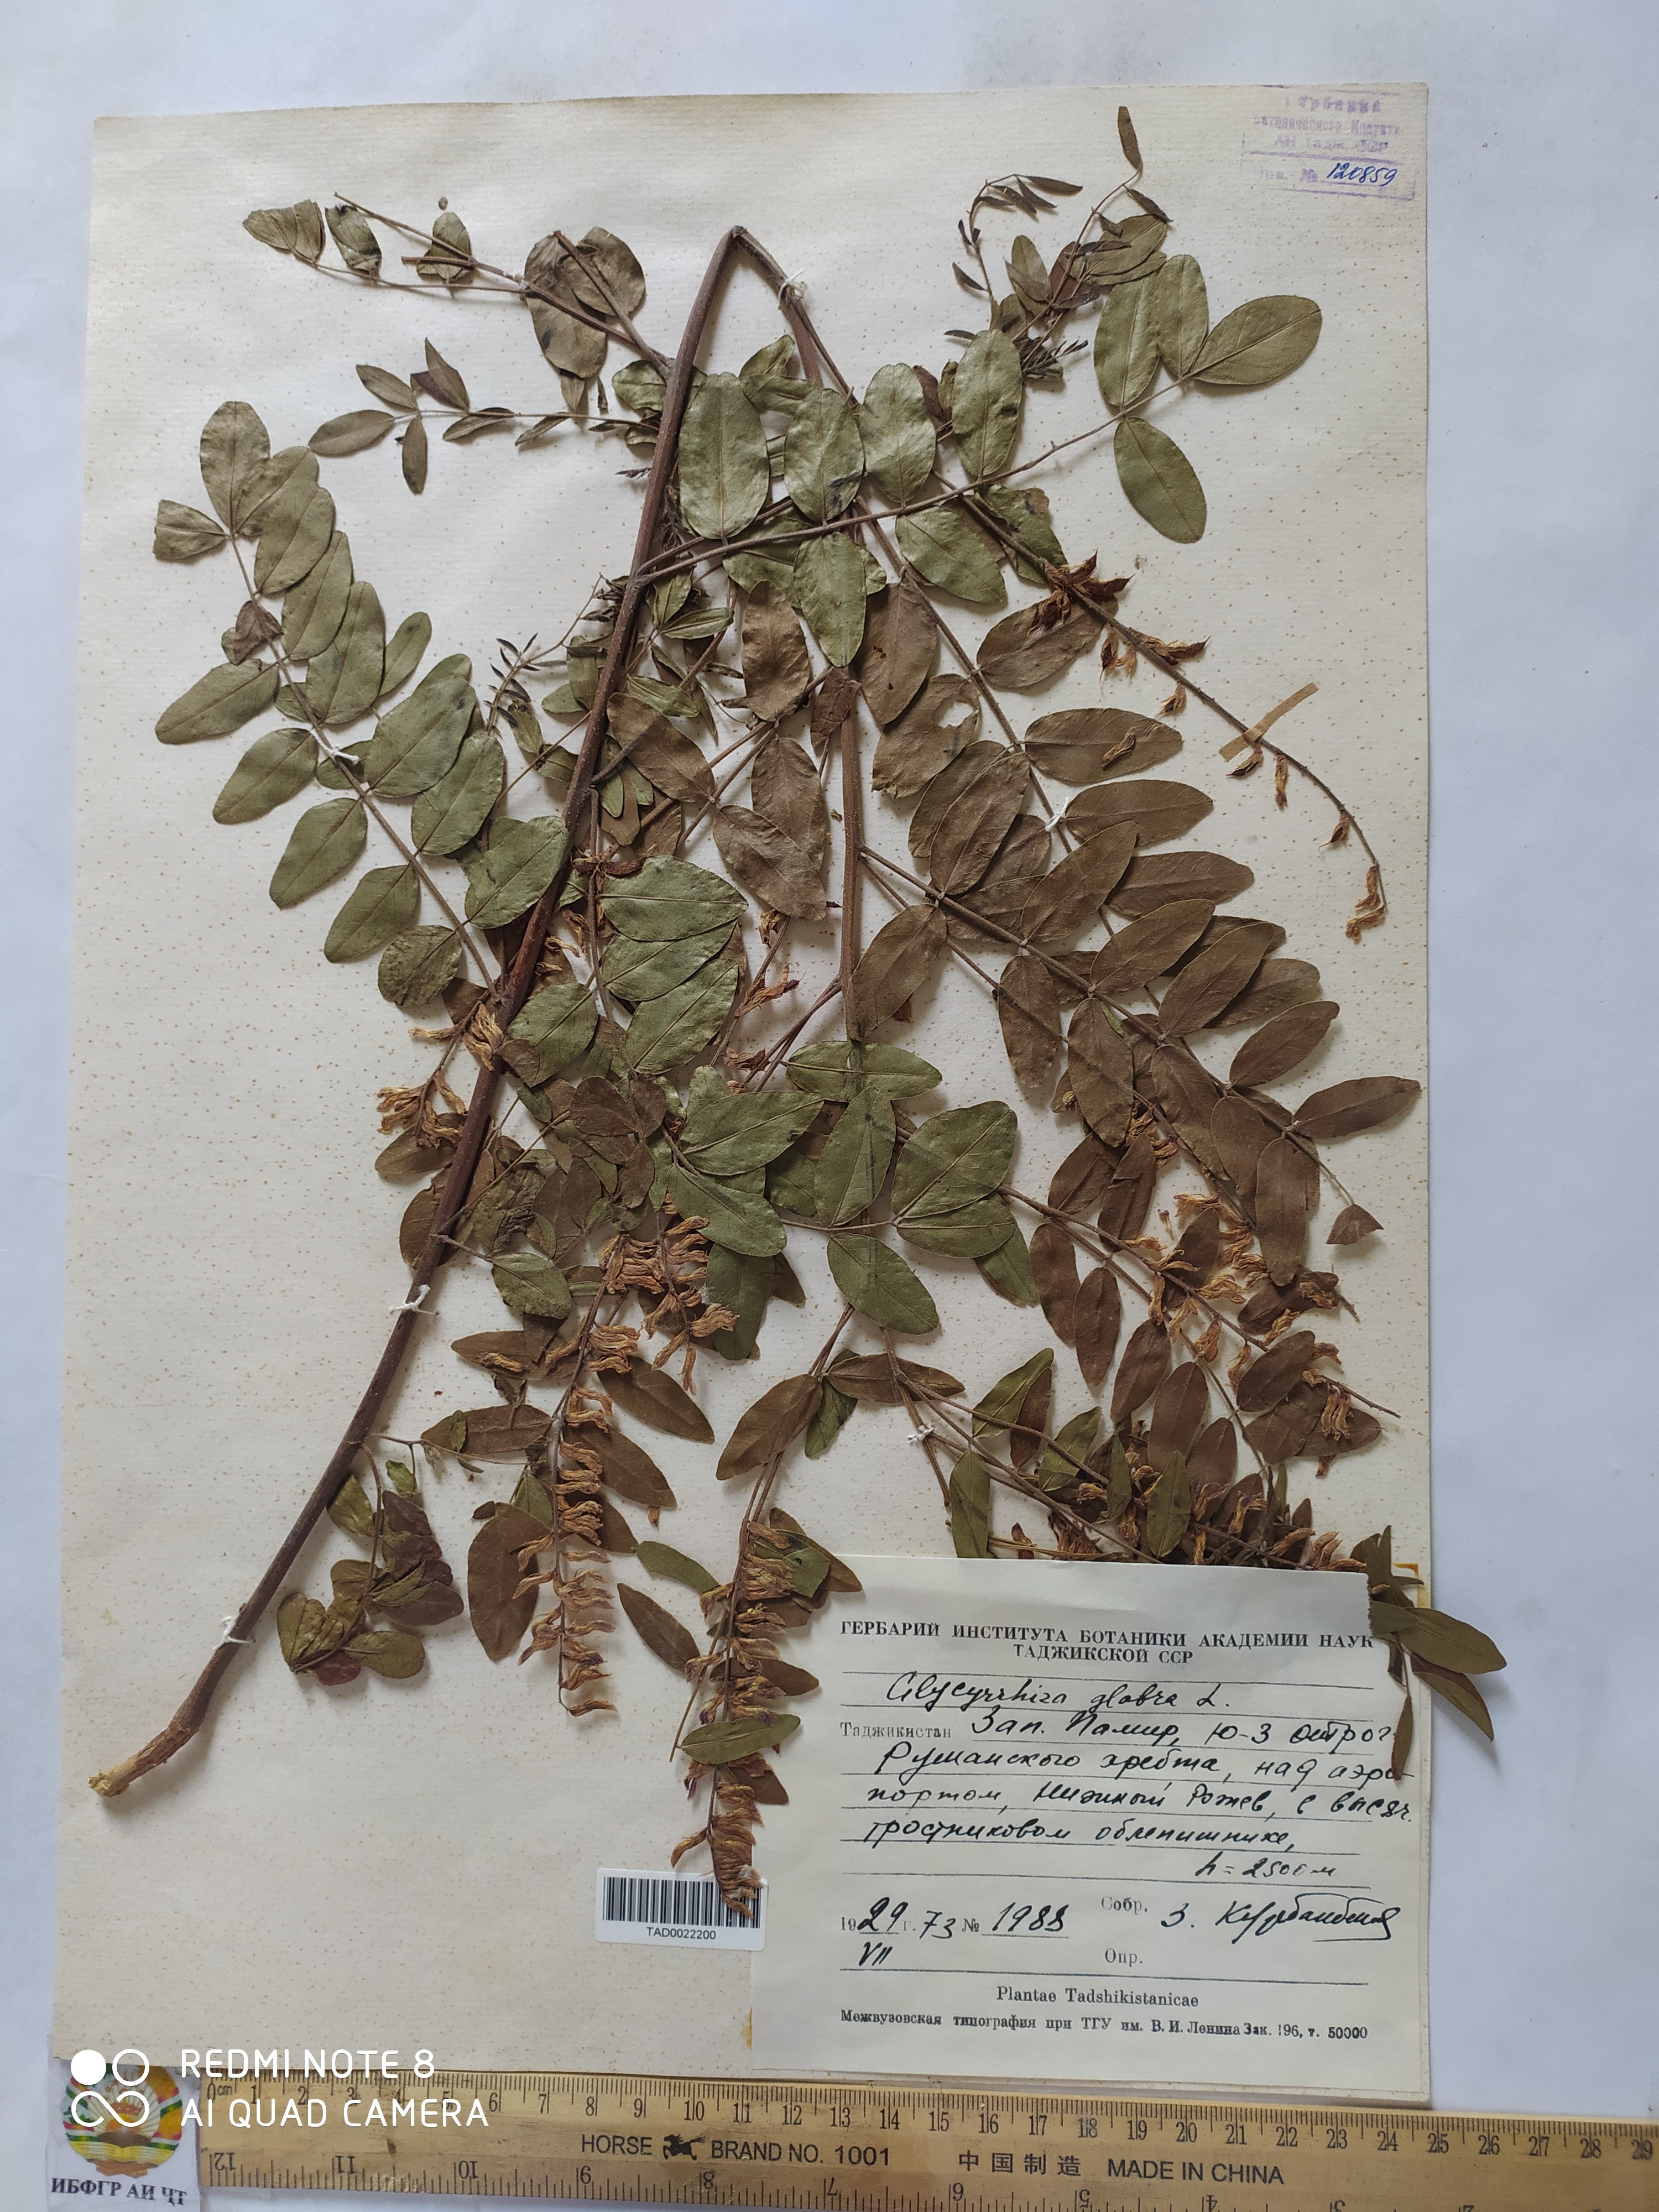 Гербарий
Ботанического Института
АН Тадж. ССР
Инв. № 120859
ГЕРБАРИЙ ИНСТИТУТА БОТАНИКИ АКАДЕМИИ НАУК
ТАДЖИКСКОЙ ССР
Glycyrrhiza glabra L.
Таджикистан Зап. Памир, Ю-З отрог
Рушанского хребта, над аэро-
портом, Нижний
тростниковом облепишнике,
h = 2500 м
1929 г. 73 № 1988 Собр. З. Курбанбекова
VII
Опр.
Plantae Tadshikistanicae
Межвузовская типография при ТГУ им. В. И. Ленина Зак. 196, т. 50000
TAD0022200
REDMI NOTE 8
AI QUAD CAMERA
0cm 1 2 3 4 5 6 7 8 9 10 11 12 13 14 15 16 17 18 19 20 21 22 23 24 25 26 27 28 29
HORSE BRAND NO. 1001 中国制造 MADE IN CHINA
12 11 10 9 8 7 6 5 4 3 2 1
ИБФГР АИ ҶТ